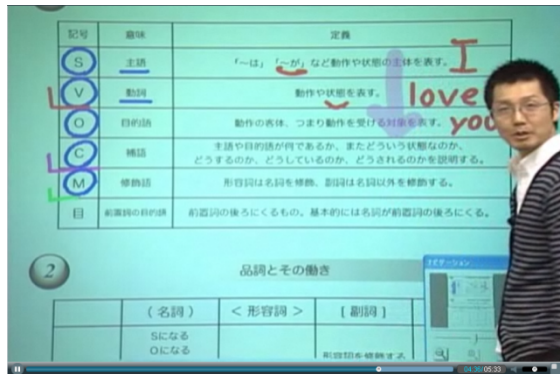 記号 意味 定義
S 主語 「～は」「～が」など動作や状態の主体を表す。 I
V 動詞 動作や状態を表す。 love
O 目的語 動作の客体、つまり動作を受ける対象を表す。 you
C 補語 主語や目的語が何であるか、またどういう状態なのか、
どうするのか、どうしているのか、どうされるのかを説明する。
M 修飾語 形容詞は名詞を修飾、副詞は名詞以外を修飾する。
目 前置詞の目的語 前置詞の後ろにくるもの。基本的には名詞が前置詞の後ろにくる。
2 品詞とその働き
ナビゲーション
(名詞) <形容詞> [副詞]
Sになる
Oになる
形容詞を修飾する
04:35/05:33